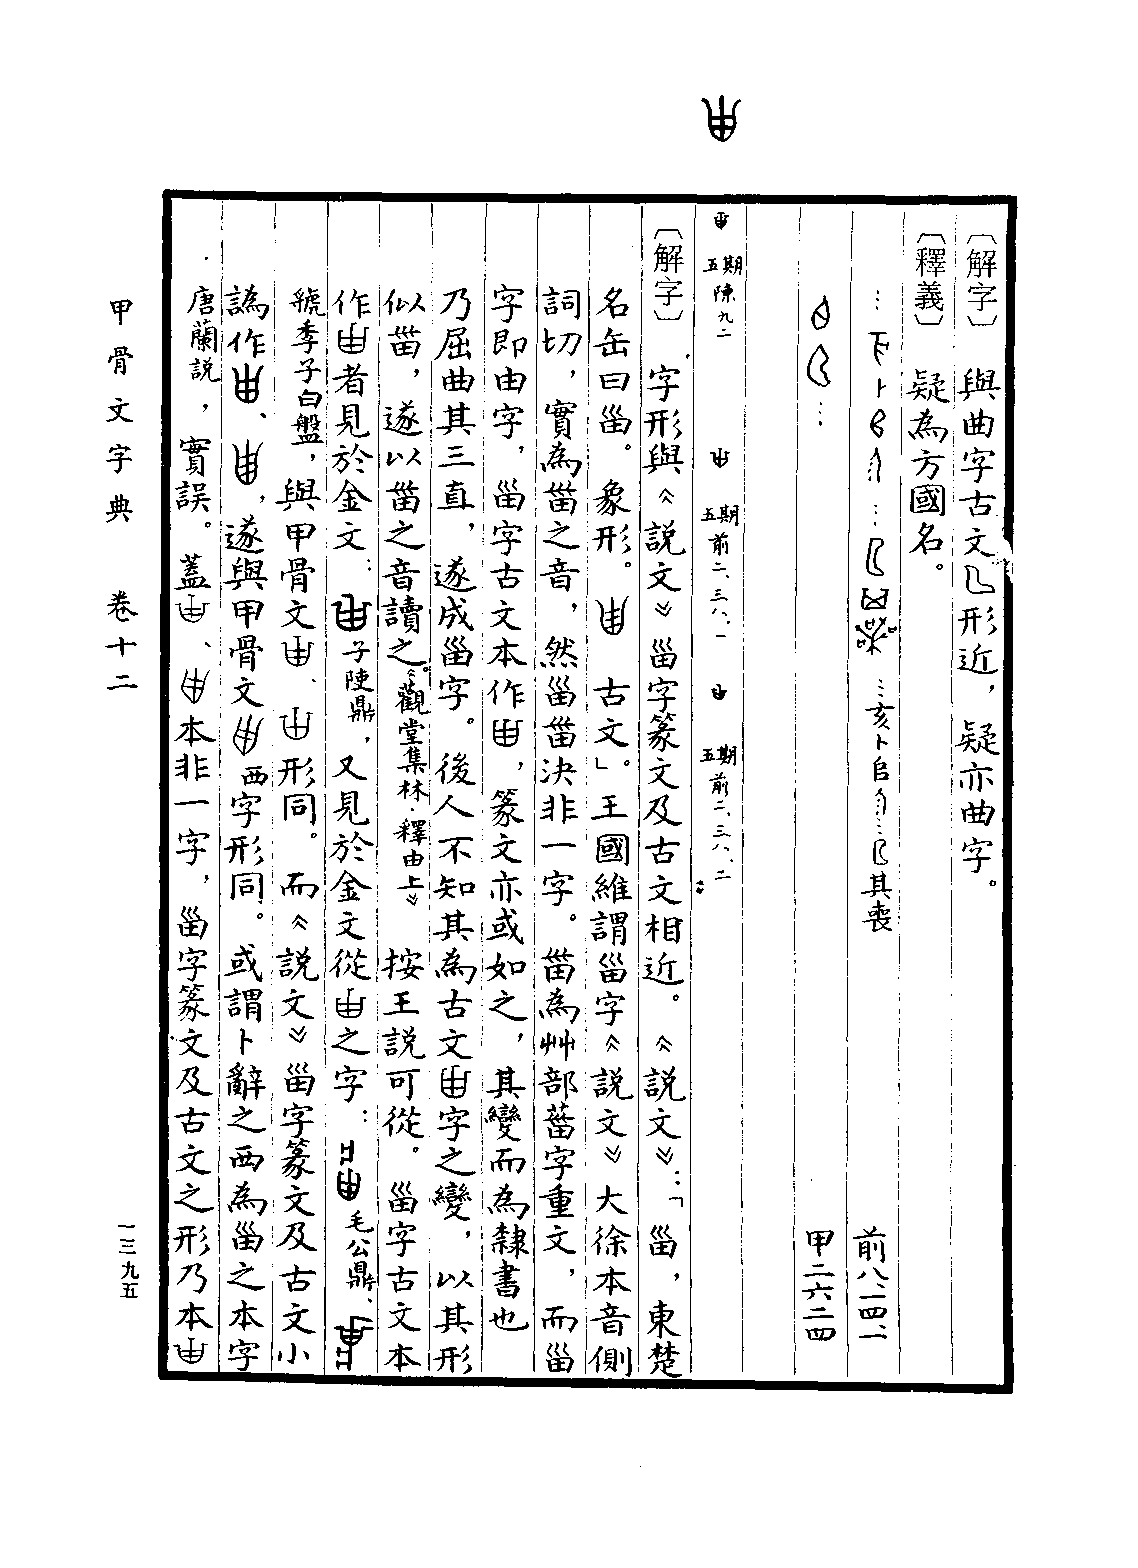 〔解字〕 與曲字古文形近，疑亦曲字。
〔釋義〕 疑為方國名。
…卜…亥卜㠯…其喪 前八、一四、一
… 甲二六二四
五期 陳九二 五期 前二、三八、一 五期 前二、三八、二
〔解字〕 字形與《說文》甾字篆文及古文相近。《說文》：「甾，東楚
名缶曰甾。象形。 古文」。王國維謂甾字《說文》大徐本音側
詞切，實為葘之音，然甾葘決非一字。葘為艸部菑字重文，而甾
字即由字，甾字古文本作，篆文亦或如之，其變而為隸書也
乃屈曲其三直，遂成甾字。後人不知其為古文字之變，以其形
似葘，遂以葘之音讀之《觀堂集林·釋由上》。按王說可從。甾字古文本
作者見於金文：子陵鼎，又見於金文從之字：毛公鼎、
虢季子白盤，與甲骨文、形同。而《說文》甾字篆文及古文小
譌作、，遂與甲骨文西字形同。或謂卜辭之西為甾之本字
唐蘭說，實誤。蓋、本非一字，甾字篆文及古文之形乃本
甲骨文字典 卷十二 一三九五